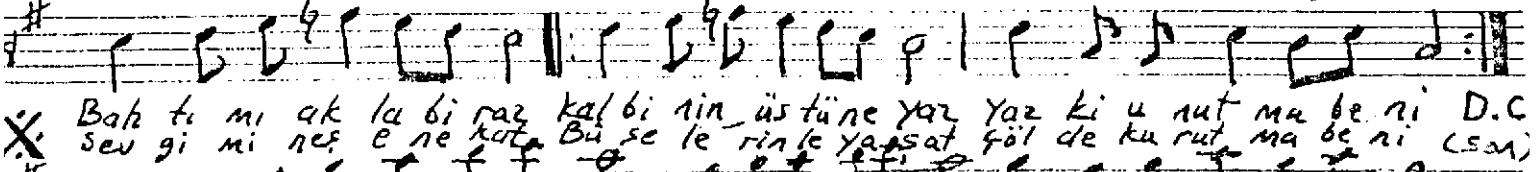 Bah tı mı ak la bi raz kal bi nin üs tüne yaz Yaz ki u nut ma be ni D.C
sev gi mi neş e ne kat Bu se le rin le yaşat çöl de ku rut ma be ni (son)